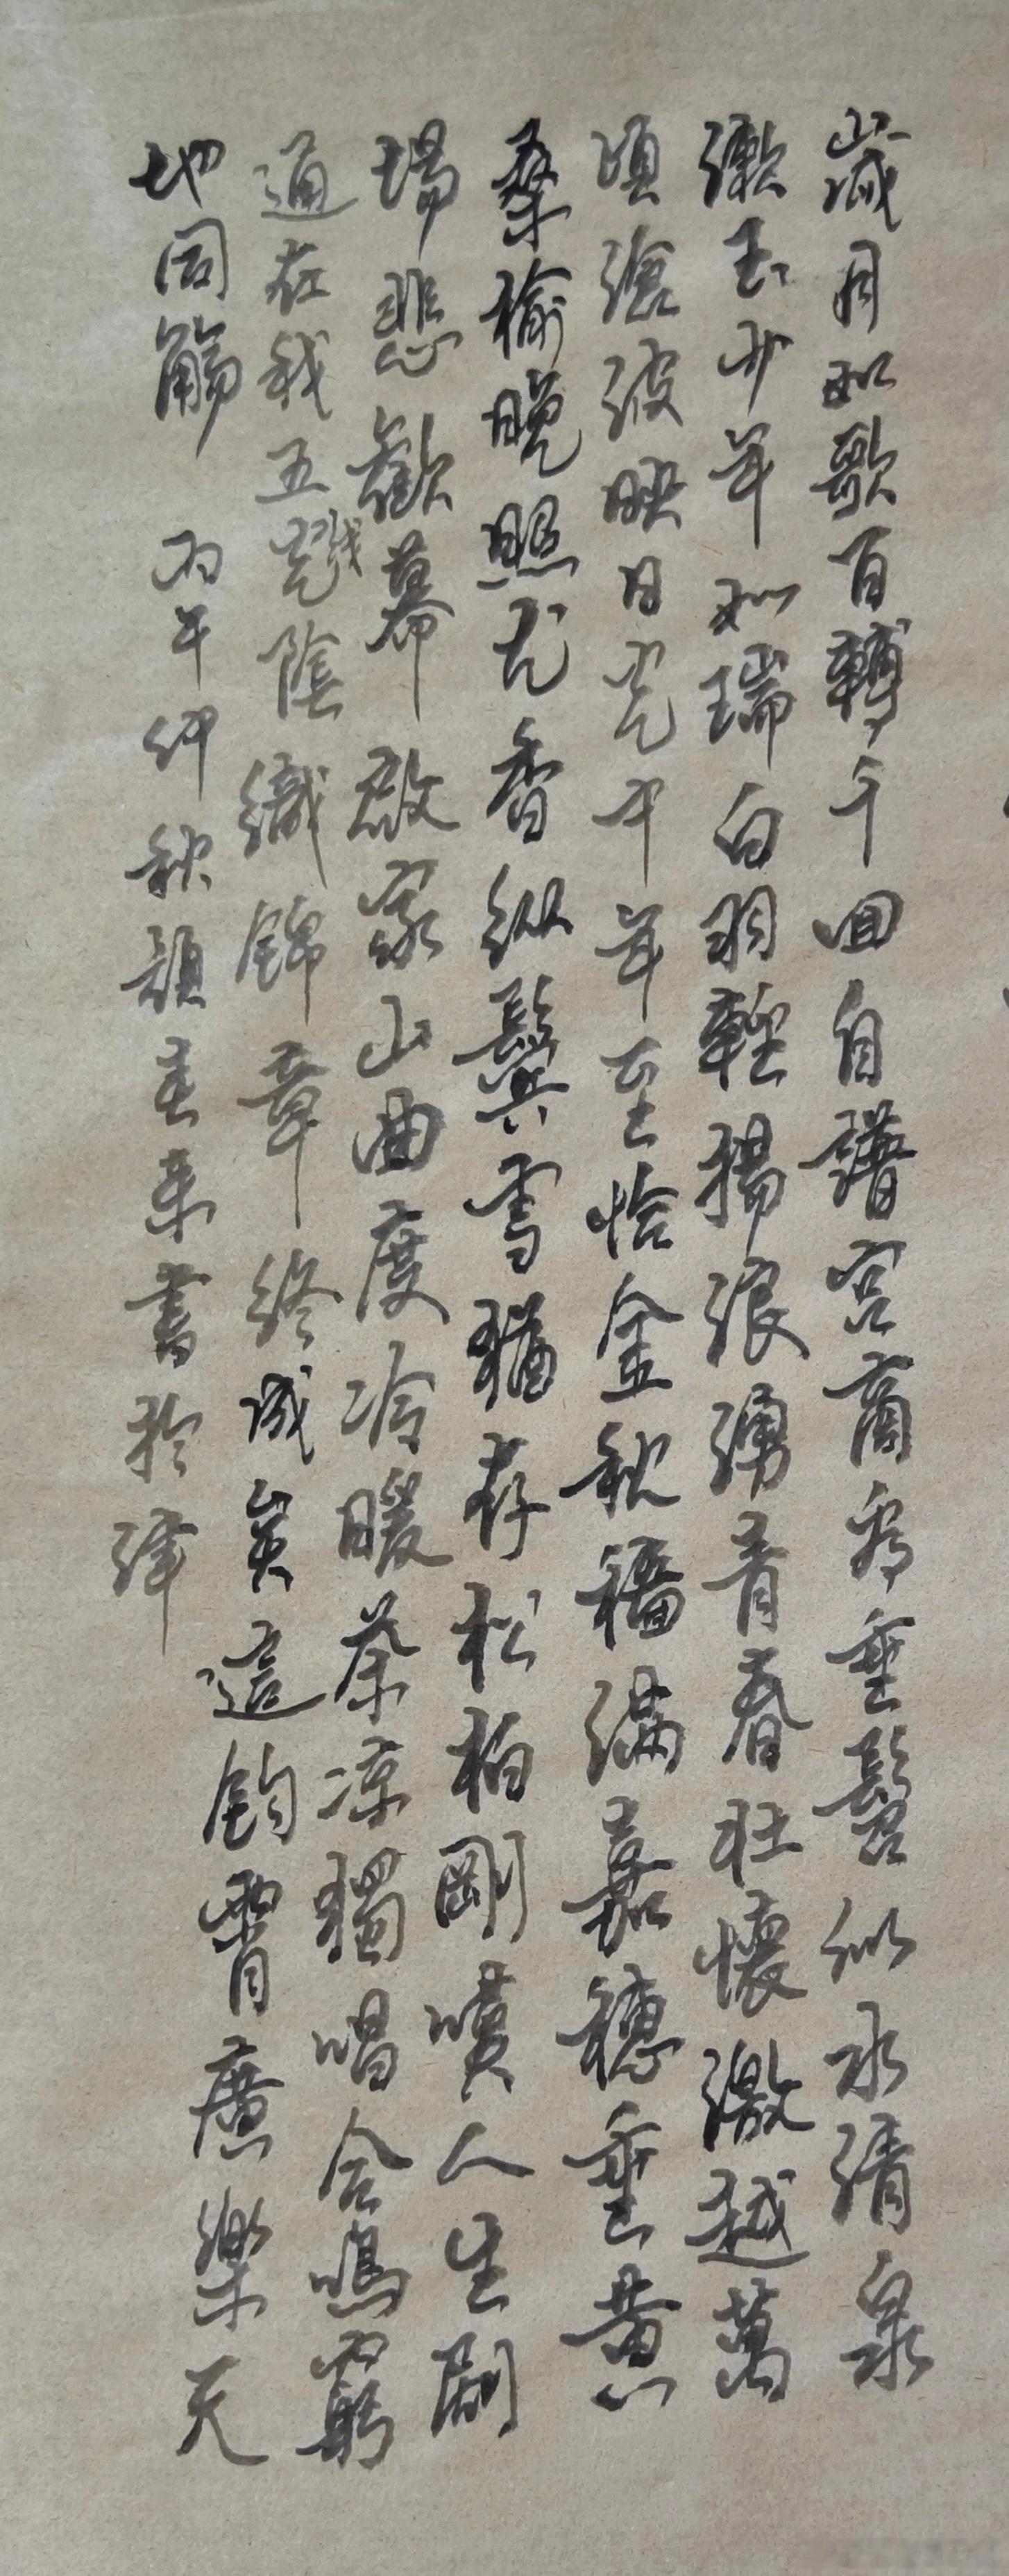 歲月如歌百轉千回自譜宮商看垂髫似水清泉
漱玉少年如瑞白羽輕揚浪湧青春壯懷激越萬
頃滄波映日光中年至恰金秋穡滿嘉穗垂黃
桑榆晚照尤香縱鬢雪猶存松柏剛嘆人生劇
場悲歡幕啟家山曲度冷暖茶涼獨唱合鳴窮
通在我五味光陰織錦章終成矣這鈞霄廣樂天
地同觴 丙午仲秋韻圭来書於津